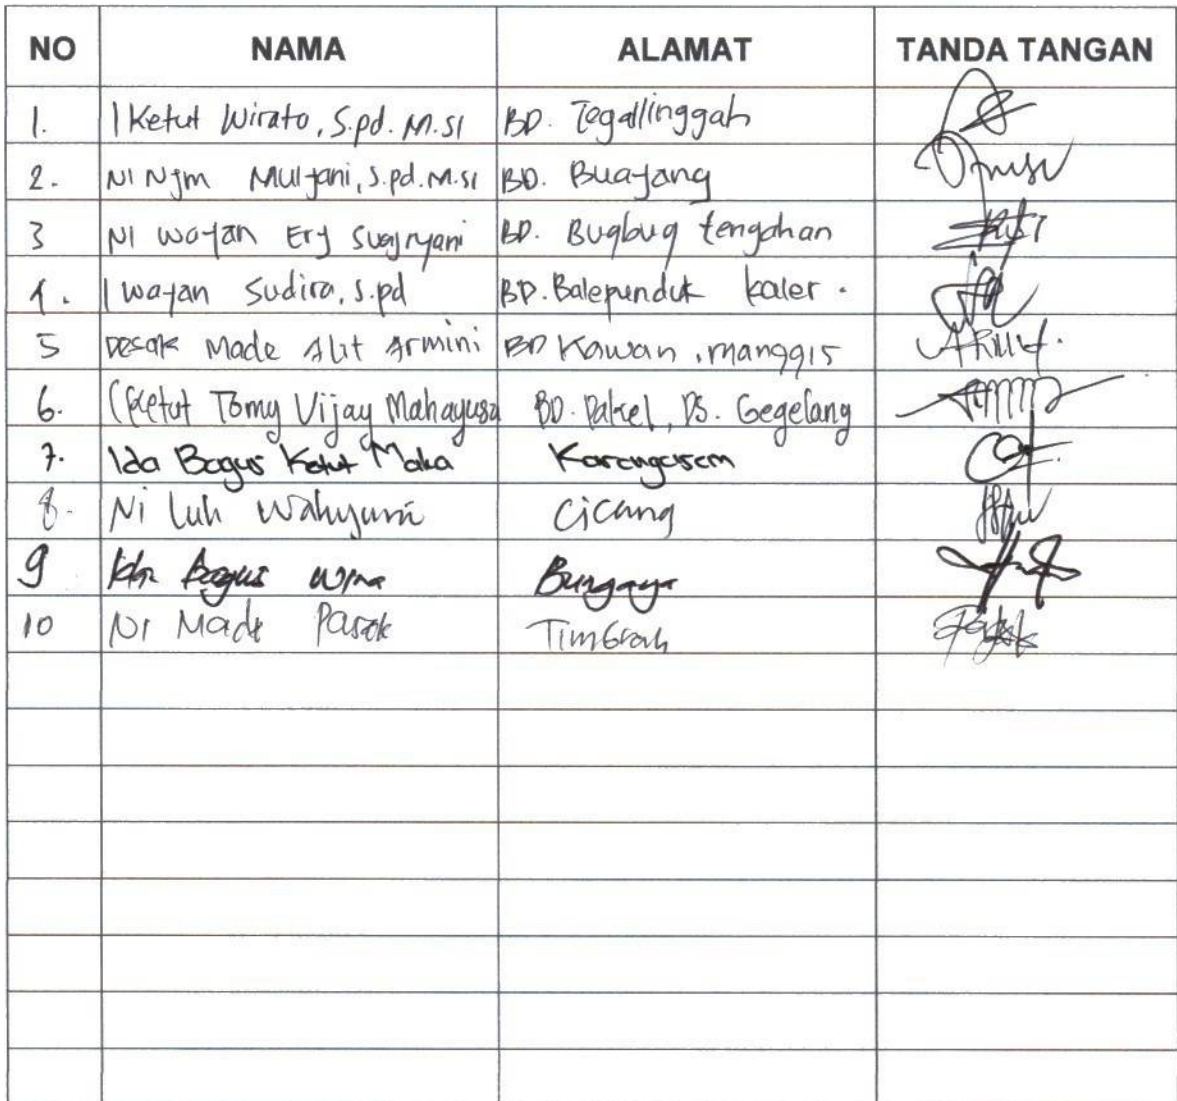 NO NAMA ALAMAT TANDA TANGAN
1. I Ketut Wirata, S.pd. M.si BD. Tegallinggah
2. NI Nym Mulyani, S.pd. M.si BD. Buayang
3 NI Wayan Ery BD. Bugbug tengahan
4. I wayan Sudira, S.pd BD. Balepunduk kaler.
5 Desak Made Alit Armini BD Kawan, manggis
6. I Ketut Tomy Vijay Mahayusa BD. Pakel, DS. Gegelang
7. Ida Bagus Ketut Maka Karangasem
8. Ni Luh Wahyuni Cicang
9 Ida Bagus Wina Bungaya
10 NI Made Pasek Timbrah